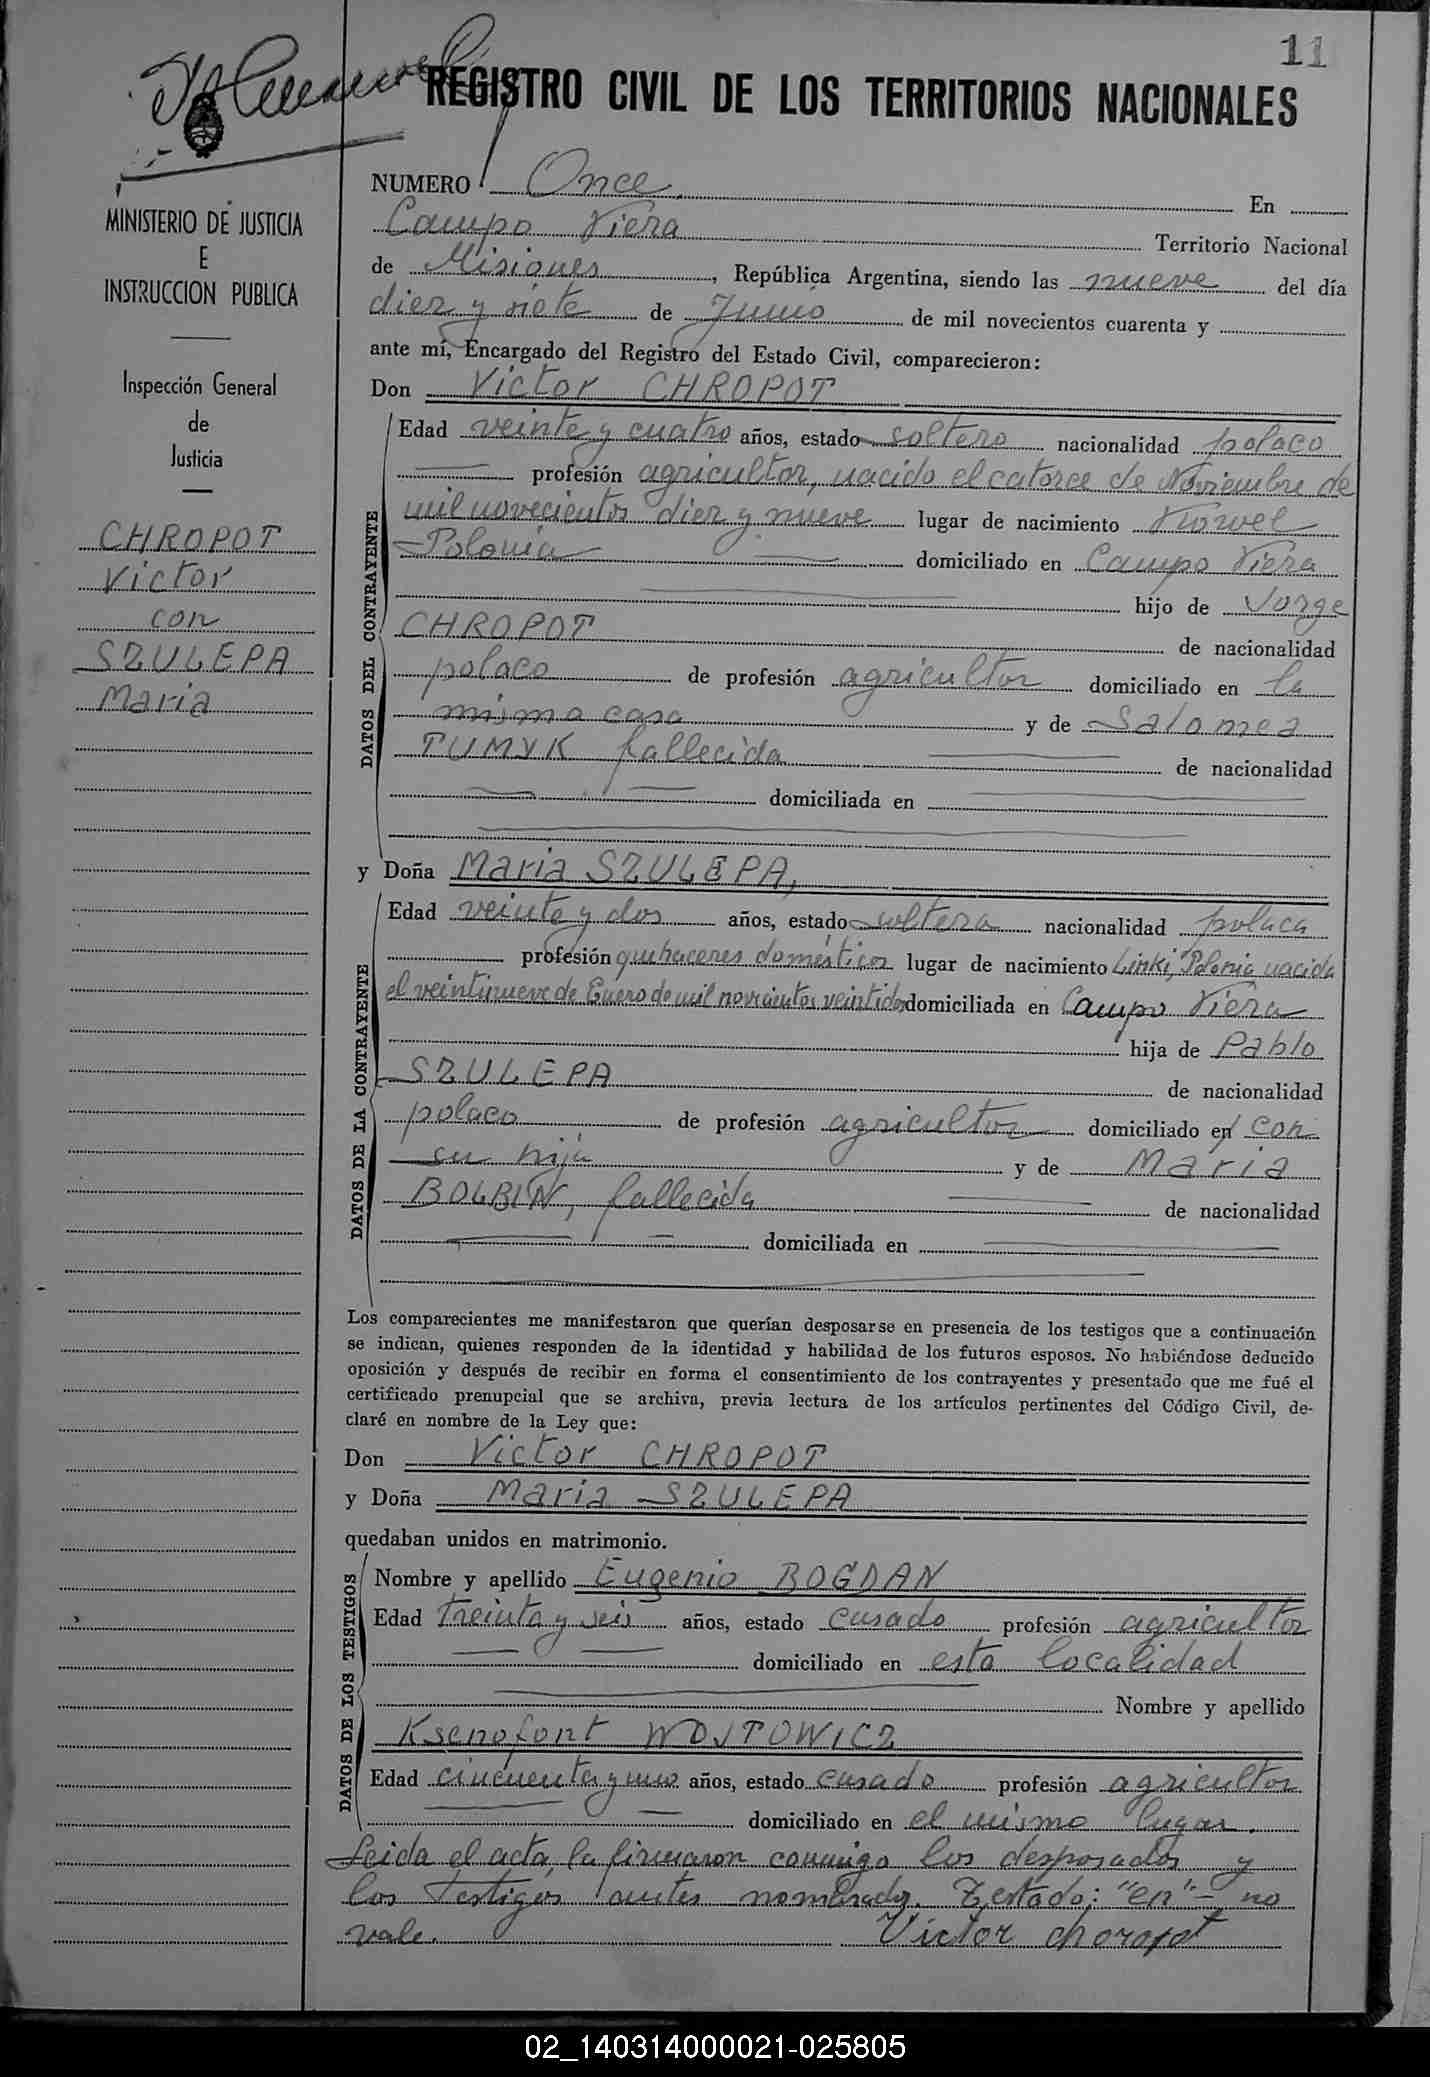 11
REGISTRO CIVIL DE LOS TERRITORIOS NACIONALES
MINISTERIO DE JUSTICIA
E
INSTRUCCION PUBLICA
Inspección General
de
Justicia
CHROPOT
Victor
con
SZULEPA
Maria
NUMERO Once En
Campo Viera Territorio Nacional
de Misiones, República Argentina, siendo las nueve del día
diez y siete de Junio de mil novecientos cuarenta y
ante mí, Encargado del Registro del Estado Civil, comparecieron:
Don Victor CHROPOT
DATOS DEL CONTRAYENTE
Edad veinte y cuatro años, estado soltero nacionalidad polaco
profesión agricultor, nacido el catorce de Noviembre de
mil novecientos diez y nueve lugar de nacimiento Kowel
Polonia domiciliado en Campo Viera
hijo de Jorge
CHROPOT de nacionalidad
polaco de profesión agricultor domiciliado en la
misma casa y de Salomea
TUMYK fallecida de nacionalidad
domiciliada en
y Doña Maria SZULEPA,
DATOS DE LA CONTRAYENTE
Edad veinte y dos años, estado soltera nacionalidad polaca
profesión quehaceres domésticos lugar de nacimiento Linki, Polonia nacida
el veintinueve de Enero de mil novecientos veintidos domiciliada en Campo Viera
hija de Pablo
SZULEPA de nacionalidad
polaco de profesión agricultor domiciliado en con
su hija y de Maria
BOLBIN, fallecida de nacionalidad
domiciliada en
Los comparecientes me manifestaron que querían desposarse en presencia de los testigos que a continuación
se indican, quienes responden de la identidad y habilidad de los futuros esposos. No habiéndose deducido
oposición y después de recibir en forma el consentimiento de los contrayentes y presentado que me fué el
certificado prenupcial que se archiva, previa lectura de los artículos pertinentes del Código Civil, de-
claré en nombre de la Ley que:
Don Victor CHROPOT
y Doña Maria SZULEPA
quedaban unidos en matrimonio.
DATOS DE LOS TESTIGOS
Nombre y apellido Eugenio BOGDAN
Edad treinta y seis años, estado casado profesión agricultor
domiciliado en esta localidad
Nombre y apellido
Ksenofont WOJTOWICZ
Edad cincuenta y uno años, estado casado profesión agricultor
domiciliado en el mismo lugar.
Leida el acta, la firmaron conmigo los desposados y
los testigos antes nombrados. Testado: "en" - no
vale. Victor choropot
02_140314000021-025805